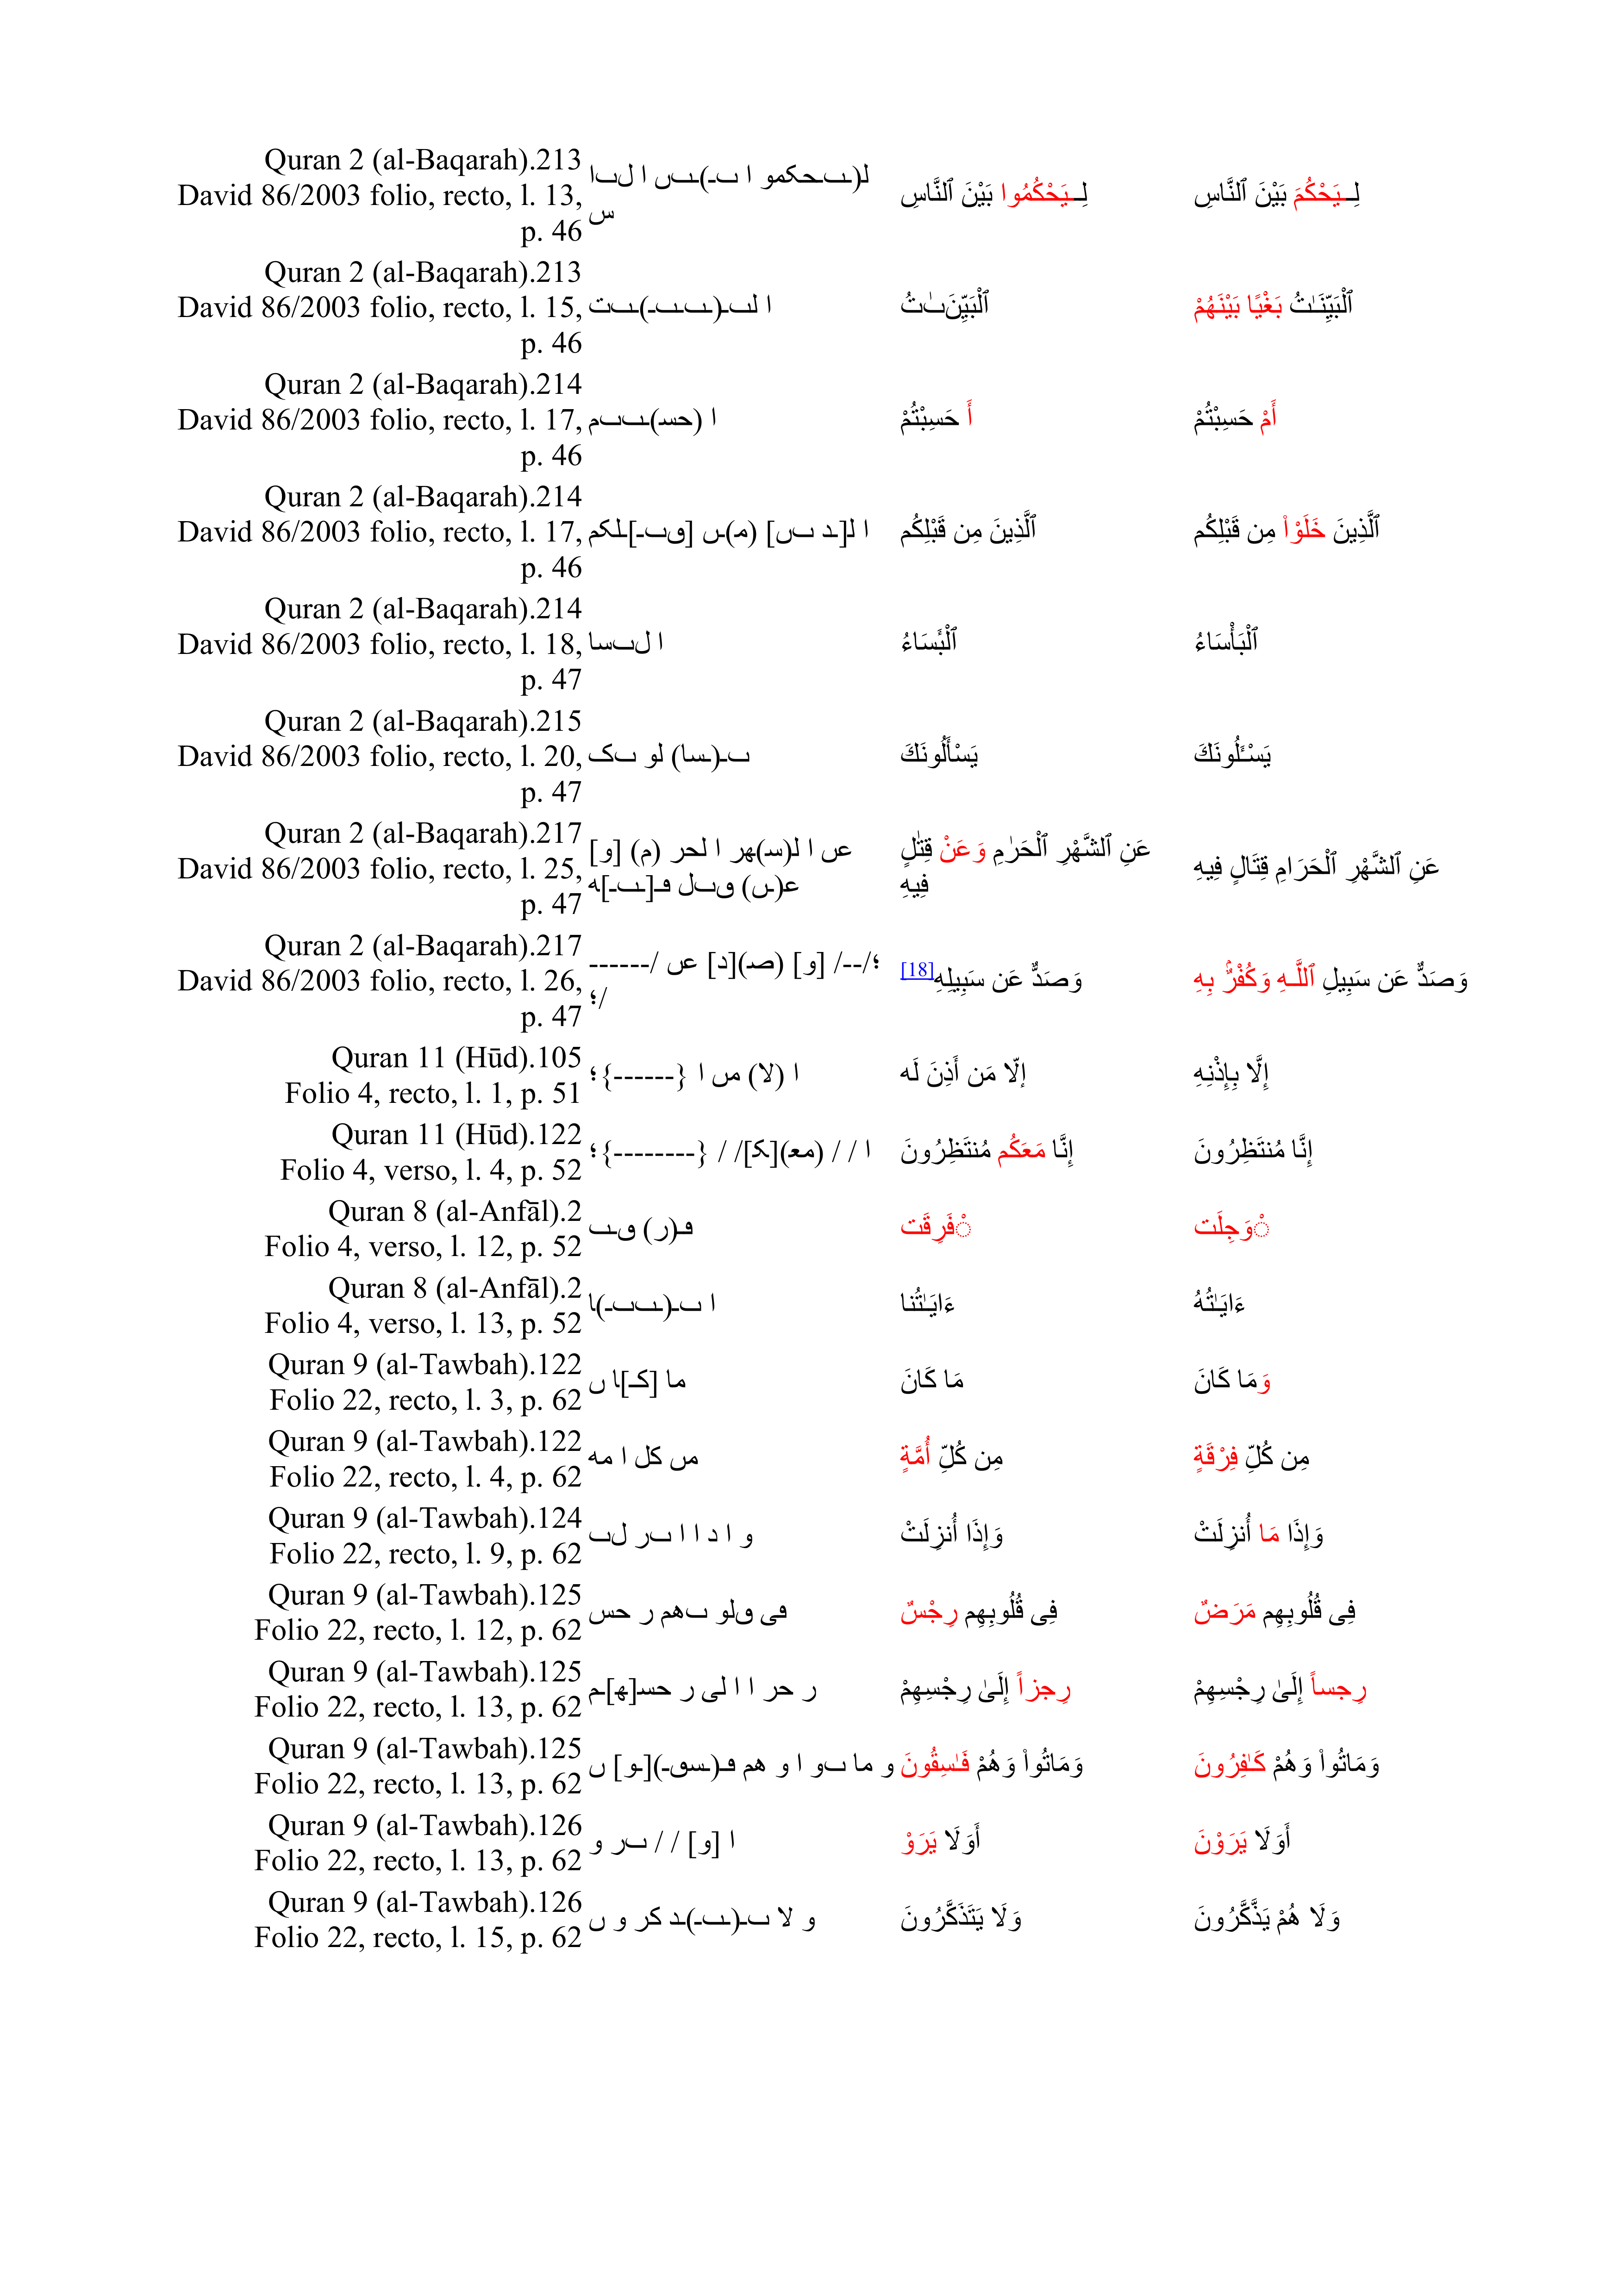 Quran 2 (al-Baqarah).213
David 86/2003 folio, recto, l. 13,
p. 46
لـ(ـٮـحکمو ا ٮـ)ـٮں ا لٮا
س
لِــيَحْكُمُوا بَيْنَ ٱلنَّاسِ
لِــيَحْكُمَ بَيْنَ ٱلنَّاسِ
Quran 2 (al-Baqarah).213
David 86/2003 folio, recto, l. 15,
p. 46
ا لٮـ(ـٮـٮـ)ـٮت
ٱلْبَيِّنَـٰتُ
ٱلْبَيِّنَـٰتُ بَغْيًا بَيْنَهُمْ
Quran 2 (al-Baqarah).214
David 86/2003 folio, recto, l. 17,
p. 46
ا (حسـ)ـٮٮم
أَ حَسِبْتُمْ
أَمْ حَسِبْتُمْ
Quran 2 (al-Baqarah).214
David 86/2003 folio, recto, l. 17,
p. 46
ا لـ[ـد ٮں] (مـ)ـں [ٯٮـ]ـلکم
ٱلَّذِينَ مِن قَبْلِكُم
ٱلَّذِينَ خَلَوْا۟ مِن قَبْلِكُم
Quran 2 (al-Baqarah).214
David 86/2003 folio, recto, l. 18,
p. 47
ا لٮسا
ٱلْبَْٔسَاءُ
ٱلْبَأْسَاءُ
Quran 2 (al-Baqarah).215
David 86/2003 folio, recto, l. 20,
p. 47
ٮـ(ـسا) لو ٮک
يَسْأَلُونَكَ
يَسْـَٔلُونَكَ
Quran 2 (al-Baqarah).217
David 86/2003 folio, recto, l. 25,
p. 47
عں ا لـ(ـسـ)ـهر ا لحر (م) [و]
عـ(ـں) ٯٮل ڡـ[ـٮـ]ـه
عَنِ ٱلشَّهْرِ ٱلْحَرٰمِ وَعَنْ قِتٰلٍ
فِيهِ
عَنِ ٱلشَّهْرِ ٱلْحَرَامِ قِتَالٍ فِيهِ
Quran 2 (al-Baqarah).217
David 86/2003 folio, recto, l. 26,
p. 47
؛/--/ [و] (صـ)[ـد] عں /------
/؛
وَصَدٌّ عَن سَبِيلِهِ[18]
وَصَدٌّ عَن سَبِيلِ ٱللَّـهِ وَكُفْرٌۢ بِهِ
Quran 11 (Hūd).105
Folio 4, recto, l. 1, p. 51
ا (لا) مں ا {------}؛
إلّا مَن أَذِنَ لَه
إِلَّا بِإِذْنِهِ
Quran 11 (Hūd).122
Folio 4, verso, l. 4, p. 52
ا / / (معـ)[ـکـ]/ / {--------}؛
إِنَّا مَعَكُم مُنتَظِرُونَ
إِنَّا مُنتَظِرُونَ
Quran 8 (al-Anfāl).2
Folio 4, verso, l. 12, p. 52
ڡـ(ـر) ٯٮ
فَرِقَت ْ
وَجِلَت ْ
Quran 8 (al-Anfāl).2
Folio 4, verso, l. 13, p. 52
ا ٮـ(ـٮٮـ)ـا
ءَايَـٰتُنا
ءَايَـٰتُهُ
Quran 9 (al-Tawbah).122
Folio 22, recto, l. 3, p. 62
ما [کـ]ـا ں
مَا كَانَ
وَمَا كَانَ
Quran 9 (al-Tawbah).122
Folio 22, recto, l. 4, p. 62
مں کل ا مه
مِن كُلِّ أُمَّةٍ
مِن كُلِّ فِرْقَةٍ
Quran 9 (al-Tawbah).124
Folio 22, recto, l. 9, p. 62
و ا د ا ا ٮر لٮ
وَإِذَا أُنزِلَتْ
وَإِذَا مَا أُنزِلَتْ
Quran 9 (al-Tawbah).125
Folio 22, recto, l. 12, p. 62
ڡى ٯلو ٮهم ر حس
فِى قُلُوبِهِم رِجْسٌ
فِى قُلُوبِهِم مَرَضٌ
Quran 9 (al-Tawbah).125
Folio 22, recto, l. 13, p. 62
ر حر ا ا لى ر حسـ[ـهـ]ـم
رِجزاً إِلَىٰ رِجْسِهِمْ
رِجساً إِلَىٰ رِجْسِهِمْ
Quran 9 (al-Tawbah).125
Folio 22, recto, l. 13, p. 62
و ما ٮو ا و هم ڡـ(ـسٯـ)[ـو] ں
وَمَاتُوا۟ وَهُمْ فَـٰسِقُونَ
وَمَاتُوا۟ وَهُمْ كَـٰفِرُونَ
Quran 9 (al-Tawbah).126
Folio 22, recto, l. 13, p. 62
ا [و] / / ٮر و
أَوَلَا يَرَوْ
أَوَلَا يَرَوْنَ
Quran 9 (al-Tawbah).126
Folio 22, recto, l. 15, p. 62
و لا ٮـ(ـٮـ)ـد کر و ں
وَلَا يَتَذَكَّرُونَ
وَلَا هُمْ يَذَّكَّرُونَ